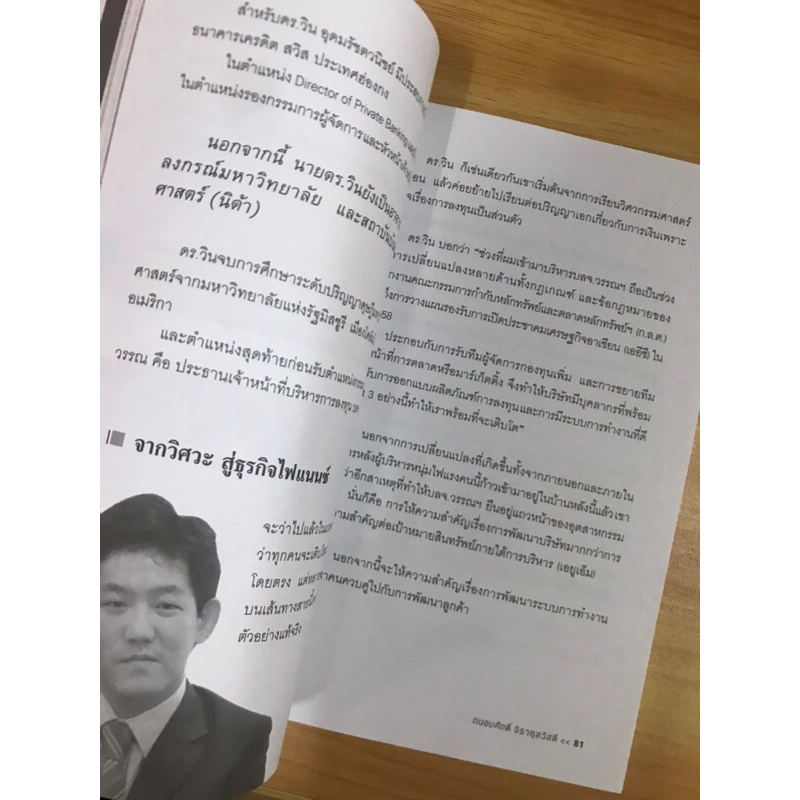 สำหรับดร.วิน อุดมรัชตวนิชย์
ธนาคารเครดิต สวิส ประเทศฮ่องกง
ในตำแหน่ง Director of Private Banking
ในตำแหน่งรองกรรมการผู้จัดการและหัวหน้า
นอกจากนี้ นายดร.วินยังเป็น
ลงกรณ์มหาวิทยาลัย และสถาบัน
ศาสตร์ (นิด้า)
ดร.วินจบการศึกษาระดับปริญญาดุษฎี
ศาสตร์จากมหาวิทยาลัยแห่งรัฐมิสซูรี เมือง
อเมริกา
และตำแหน่งสุดท้ายก่อนรับตำแหน่ง
วรรณ คือ ประธานเจ้าหน้าที่บริหารการลงทุน
จากวิศวะ สู่ธุรกิจไฟแนนซ์
จะว่าไปแล้วใน
ว่าทุกคนจะเติบ
โดยตรง แต่
บนเส้นทางสาย
ตัวอย่างแท้จริง
ดร.วิน ก็เช่นเดียวกันเขาเริ่มต้นจากการเรียนวิศวกรรมศาสตร์
อน แล้วค่อยย้ายไปเรียนต่อปริญญาเอกเกี่ยวกับการเงินเพราะ
จเรื่องการลงทุนเป็นส่วนตัว
ดร.วิน บอกว่า "ช่วงที่ผมเข้ามาบริหารบลจ.วรรณฯ ถือเป็นช่วง
ารเปลี่ยนแปลงหลายด้านทั้งกฎเกณฑ์ และข้อกฎหมายของ
กงานคณะกรรมการกำกับหลักทรัพย์และตลาดหลักทรัพย์ฯ (ก.ล.ต.)
ึงการวางแผนรองรับการเปิดประชาคมเศรษฐกิจอาเซียน (เออีซี) ใน
58
ประกอบกับการรับทีมผู้จัดการกองทุนเพิ่ม และการขยายทีม
หน้าที่การตลาดหรือมาร์เก็ตติ้ง จึงทำให้บริษัทมีบุคลากรที่พร้อม
รับการออกแบบผลิตภัณฑ์การลงทุนและการมีระบบการทำงานที่ดี
3 อย่างนี้ทำให้เราพร้อมที่จะเติบโต"
นอกจากการเปลี่ยนแปลงที่เกิดขึ้นทั้งจากภายนอกและภายใน
รหลังผู้บริหารหนุ่มไฟแรงคนนี้ก้าวเข้ามาอยู่ในบ้านหลังนี้แล้วเขา
ว่าอีกสาเหตุที่ทำให้บลจ.วรรณฯ ยืนอยู่แถวหน้าของอุตสาหกรรม
นั่นก็คือ การให้ความสำคัญเรื่องการพัฒนาบริษัทมากกว่าการ
วามสำคัญต่อเป้าหมายสินทรัพย์ภายใต้การบริหาร (เอยูเอ็ม)
นอกจากนี้จะให้ความสำคัญเรื่องการพัฒนาระบบการทำงาน
าคนควบคู่ไปกับการพัฒนาลูกค้า
ถนอมศักดิ์ จิรายุสวัสดิ์ << 81